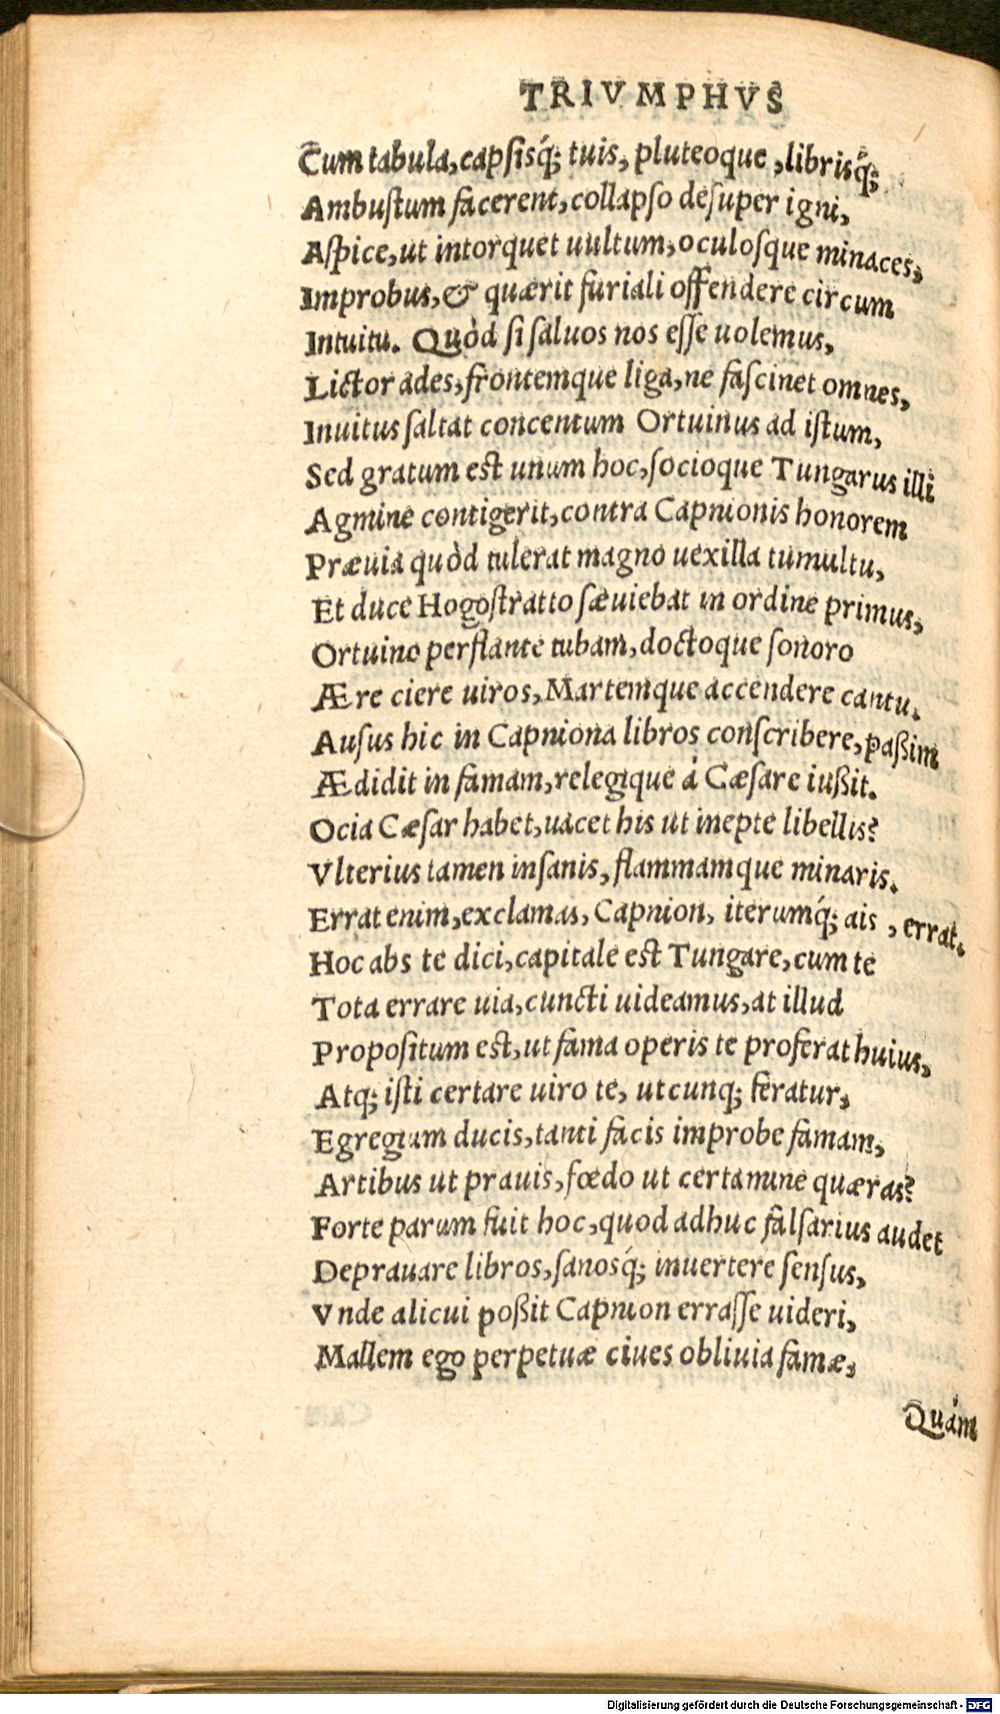 TRIVMPHVS
Cum tabula, capsisq́; tuis, pluteoque, librisq́;
Ambustum facerent, collapso desuper igni,
Aspice, ut intorquet uultum, oculosque minaces,
Improbus, & quærit furiali offendere circum
Intuitu. Quòd si saluos nos esse uolemus,
Lictor ades, frontemque liga, ne fascinet omnes,
Inuitus saltat concentum Ortuinus ad istum,
Sed gratum est unum hoc, socioque Tungarus illi
Agmine contigerit, contra Capnionis honorem
Præuia quòd tulerat magno uexilla tumultu,
Et duce Hogostratto sæuiebat in ordine primus,
Ortuino perflante tubam, doctoque sonoro
Ære ciere uiros, Martemque accendere cantu.
Ausus hic in Capniona libros conscribere, paßim
Ædidit in famam, relegique á Cæsare iußit.
Ocia Cæsar habet, uacet his ut inepte libellis?
Vlterius tamen insanis, flammamque minaris.
Errat enim, exclamas, Capnion, iterumq́; ais, errat.
Hoc abs te dici, capitale est Tungare, cum te
Tota errare uia, cuncti uideamus, at illud
Propositum est, ut fama operis te proferat huius,
Atq; isti certare uiro te, utcunq; feratur,
Egregium ducis, tanti facis improbe famam,
Artibus ut prauis, fœdo ut certamine quæras?
Forte parum fuit hoc, quod adhuc falsarius audet
Deprauare libros, sanosq́; inuertere sensus,
Vnde alicui poßit Capnion errasse uideri,
Mallem ego perpetuæ ciues obliuia famæ,
Quám
Digitalisierung gefördert durch die Deutsche Forschungsgemeinschaft - DFG